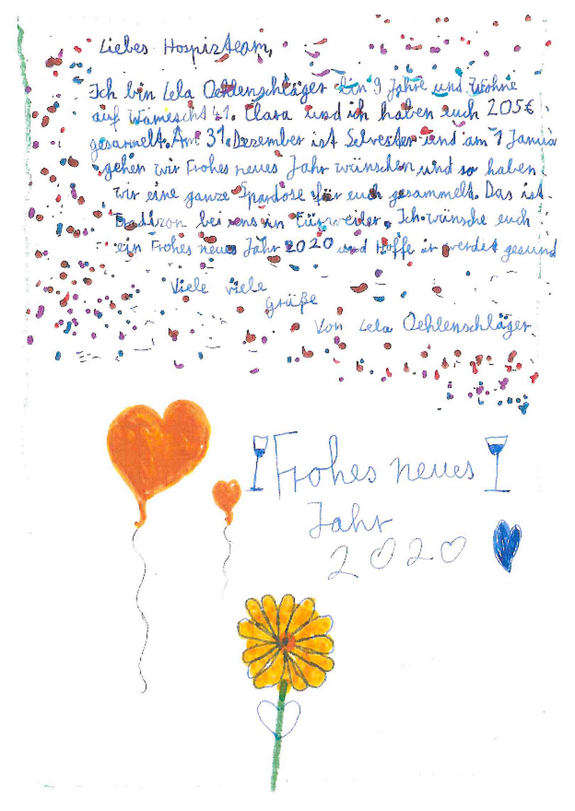 Liebes Hospizteam,
Ich bin Lela Oehlenschläger bin 9 Jahre und wohne
auf Wamescht 41. Clara und ich haben euch 205€
gesammelt. Am 31. Dezember ist Selvester und am 1 Januar
gehen wir Frohes neues Jahr wünschen und so haben
wir eine ganze Spardose für euch gesammelt. Das ist
bei uns in Fürweiler. Ich wünsche euch
ein Frohes neues Jahr 2020 und Hoffe ir werdet gesund
Viele viele
grüße
Von Lela Oehlenschläger.
Frohes neues
Jahr
2020